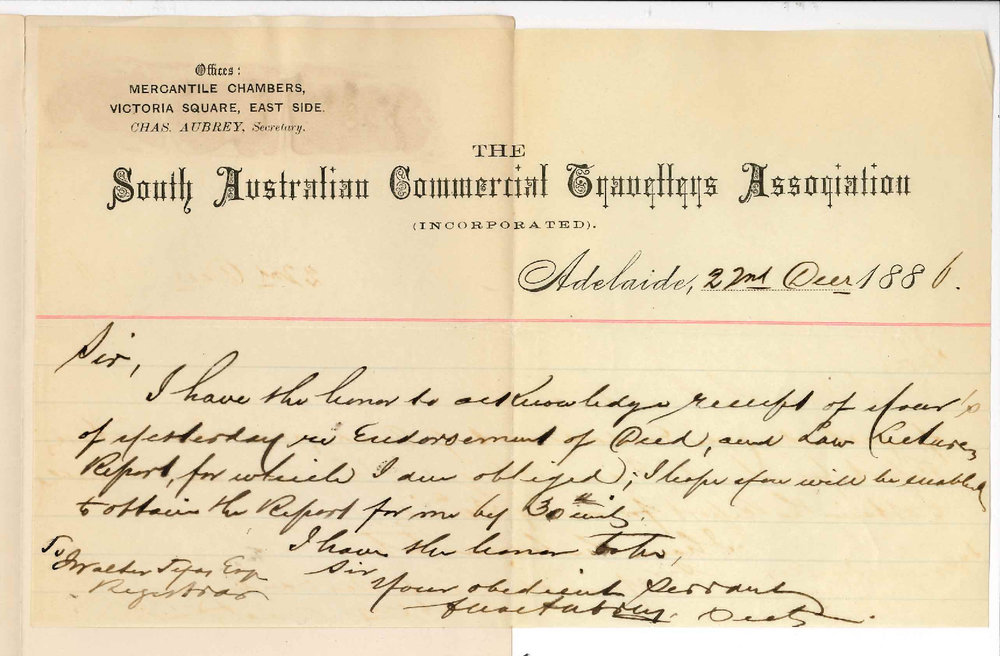 Offices:
MERCANTILE CHAMBERS,
VICTORIA SQUARE, EAST SIDE.
CHAS. AUBREY, Secretary.
THE
South Australian Commercial Travellers Association
(INCORPORATED).
Adelaide, 22nd Decr 1886.
Sir,
I have the honor to acknowledge receipt of your
of yesterday re Endorsement of Deed, and Law Lecture
Report, for which I am obliged; I hope you will be enabled
to obtain the Report for me by 30th
I have the honor to be,
Sir
Your obedient Servant
Chas Aubrey. Secty.
To
Walter Tyas Esq
Registrar